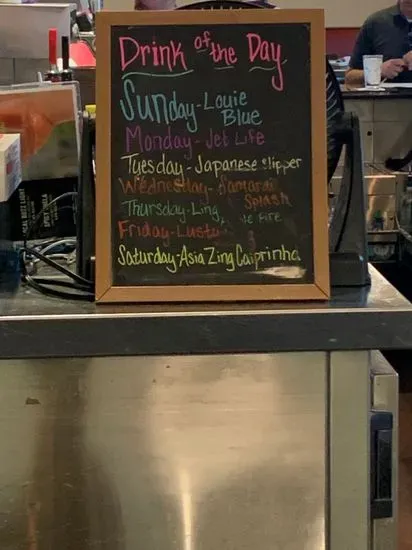 Drink of the Day
Sunday - Louie
Blue
Monday - Jet Life
Tuesday - Japanese Slipper
Wednesday - Bamardi
Splash
Thursday - Ling
Fire
Friday - Lust
Saturday - Asia Zing Caiprinha